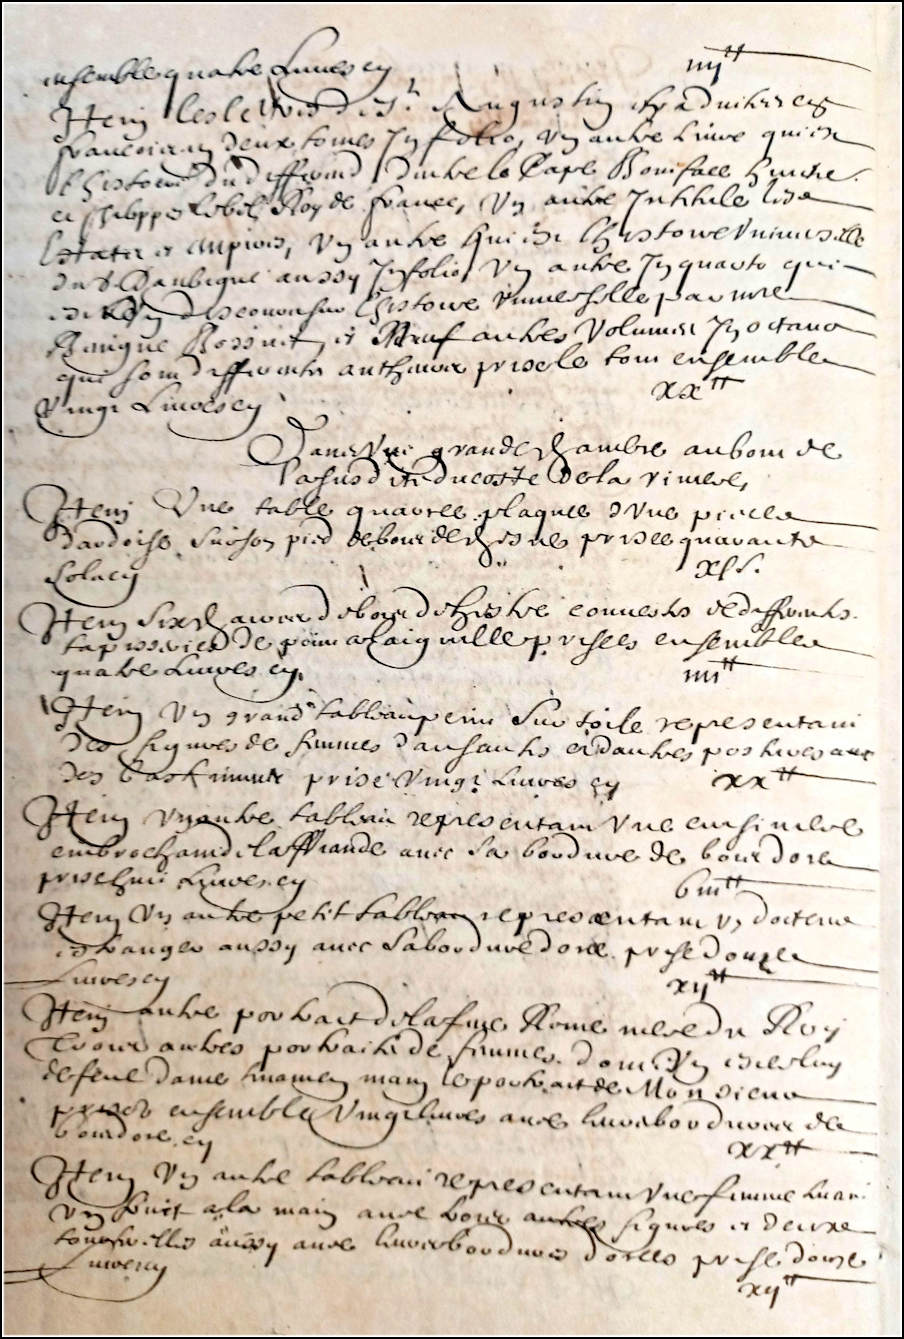 ensemble quatre Livres cy iiij tt
Item les lettres de St Augustin traduittes en
francois en deux tomes In folio, un autre livre qui est
l'histoire du differend d'entre le Pape Boniface huitie
et Philippes lebel Roy de france, un autre Intitule les
Estatz et empires, un autre qui est l'histoire universelle
du Sr Daubigne aussy In folio, un autre In quarto qui
est discours sur l'histoire universelle par mre
Benigne Bossuet, et Neuf autres volumes In octavo
qui sont differents autheurs prise le tout ensemble
vingt Livres cy xx tt
Dans une grande chambre au bout de
la susditte du coste de la riviere,
Item Une table quarree plaquee d'une piece
d'ardoise sur son pied de bois de chesne prisee quarante
sols cy xl s.
Item six chaires de bois de hestre couvertes de differentes
tapisseries de point a laiguille prisees ensemble
quatre Livres cy iiij tt
Item un grand tableau peint sur toile representant
des figures de femmes dansants et d'autres postures avec
des bastiments prise vingt Livres cy xx tt
Item un autre tableau representant une cuisiniere
embrochant de la viande avec sa bordure de bois dore
prise huit Livres cy viij tt
Item un autre petit tableau representant un docteur
estranger aussy avec sa bordure doree prise douze
Livres cy xij tt
Item autre portrait de la feue Reine mere du Roy
trois autres portraits de femmes dont un est celuy
de feue dame le portrait de Monsieur
prises ensemble vingt livres avec leurs bordures de
bois dore cy xx tt
Item un autre tableau representant une femme tenant
un fruit a la main avec trois autres figures et deux
tourterelles aussy avec leurs bordures dorees prise douze
Livres cy xij tt